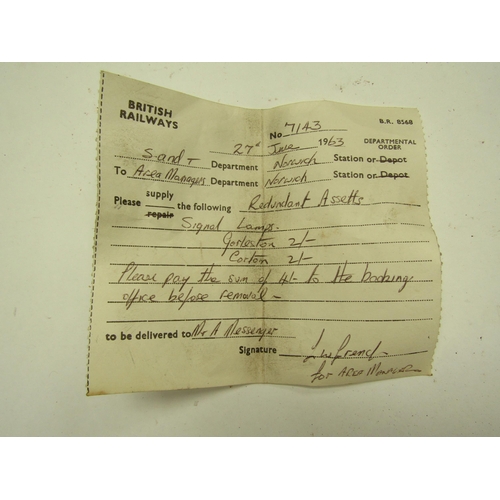 BRITISH RAILWAYS
B.R. 8568
No 7143
27th June 1963
DEPARTMENTAL ORDER
S and T Department Norwich Station or Depot
To Area Managers Department Norwich Station or Depot
Please supply repair the following Redundant Assetts
Signal Lamps.
Gorleston 2/-
Corton 2/-
Please pay the sum of 4/- to the booking
office before removal -
to be delivered to Mr A Messenger
Signature French
for Area Manager